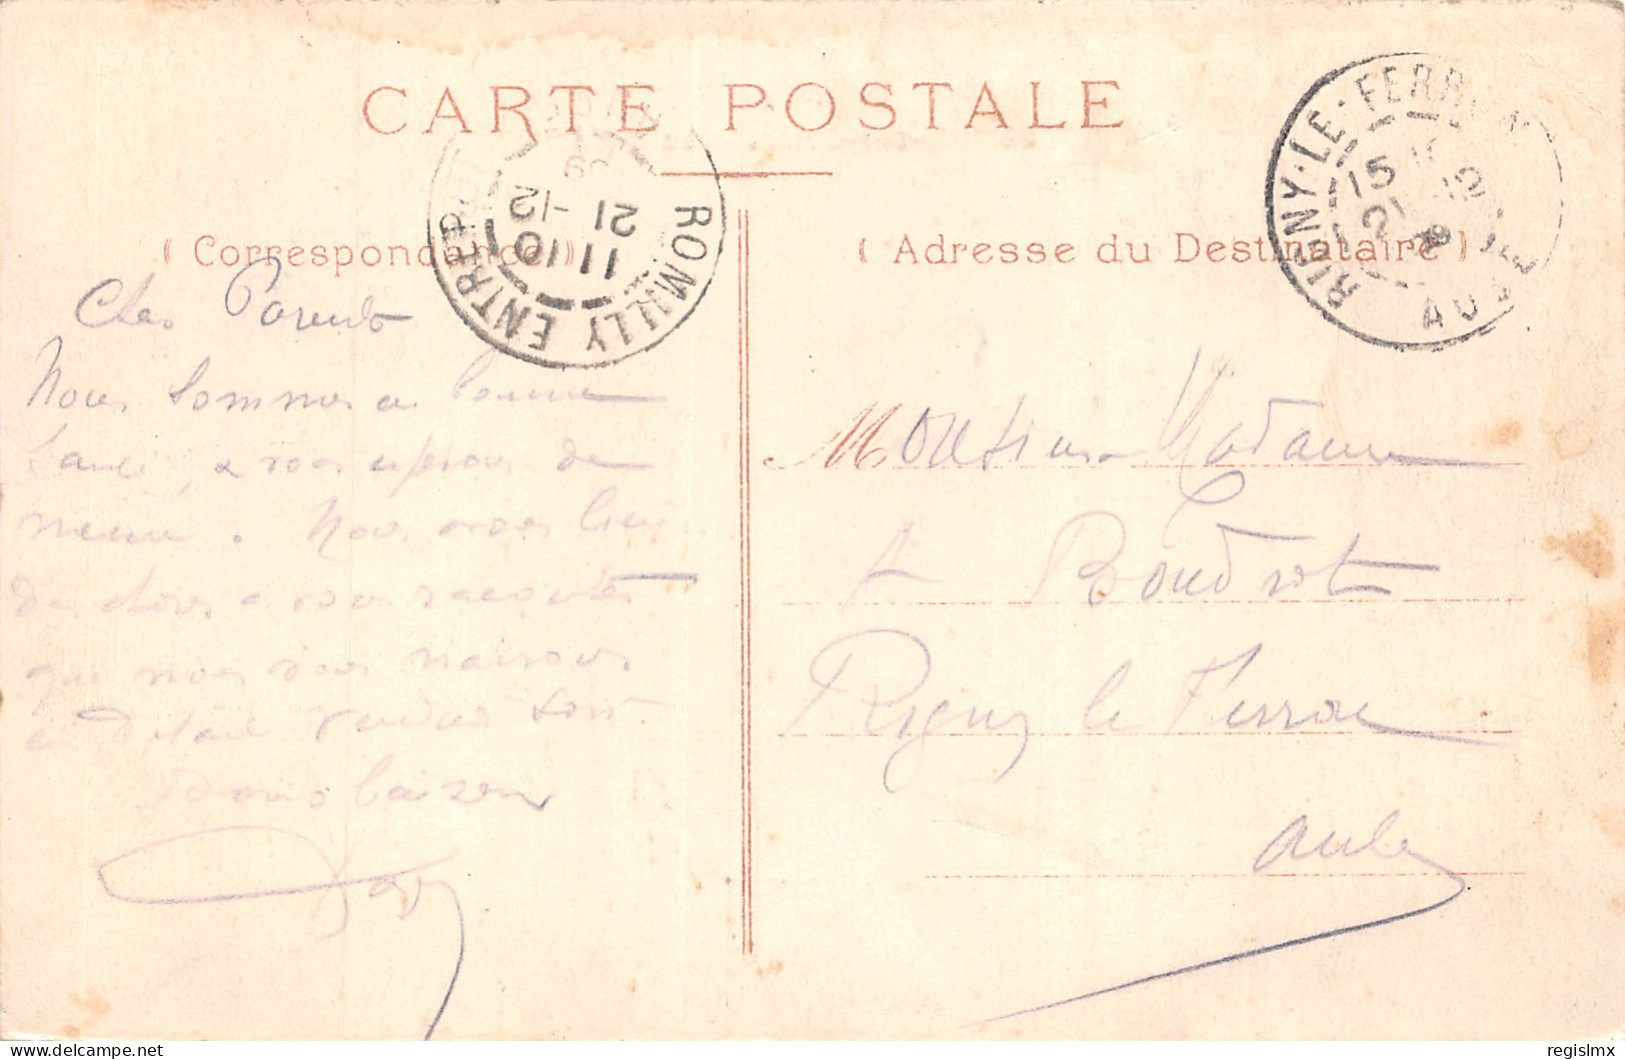 CARTE POSTALE
( Correspondance )
( Adresse du Destinataire )
ROMILLY ENTREP
11 10
21 -12
09
RIGNY-LE-FERRON
15
21
AUBE
Cher Parents
Nous sommes en bonne
santé, a vous esperons de
meme. Nous avons bien
des choses a vous raconter
que nous vous
en detail
baisers
Monsieur Madame
A Boudrot
Rigny le Ferron
Aube
delcampe.net
regislmx